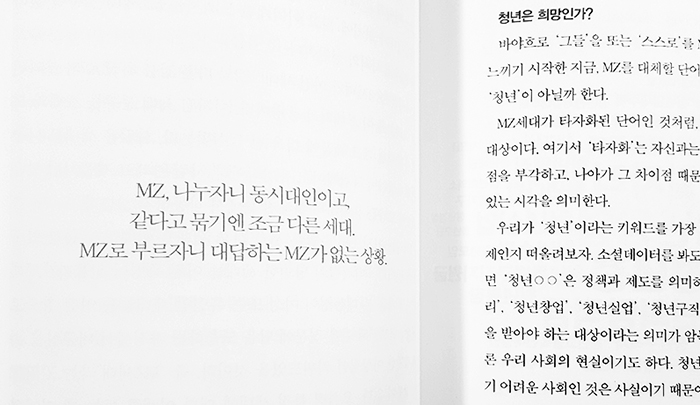 MZ, 나누자니 동시대인이고,
같다고 묶기엔 조금 다른 세대.
MZ로 부르자니 대답하는 MZ가 없는 상황.
청년은 희망인가?
바야흐로 '그들'을 또는 '스스로'를
느끼기 시작한 지금, MZ를 대체할 단어
'청년'이 아닐까 한다.
MZ세대가 타자화된 단어인 것처럼,
대상이다. 여기서 '타자화'는 자신과는
점을 부각하고, 나아가 그 차이점 때문
있는 시각을 의미한다.
우리가 '청년'이라는 키워드를 가장
제인지 떠올려보자. 소셜데이터를 봐도
면 '청년○○'은 정책과 제도를 의미하
리', '청년창업', '청년실업', '청년구직
을 받아야 하는 대상이라는 의미가 암
론 우리 사회의 현실이기도 하다. 청년
기 어려운 사회인 것은 사실이기 때문이